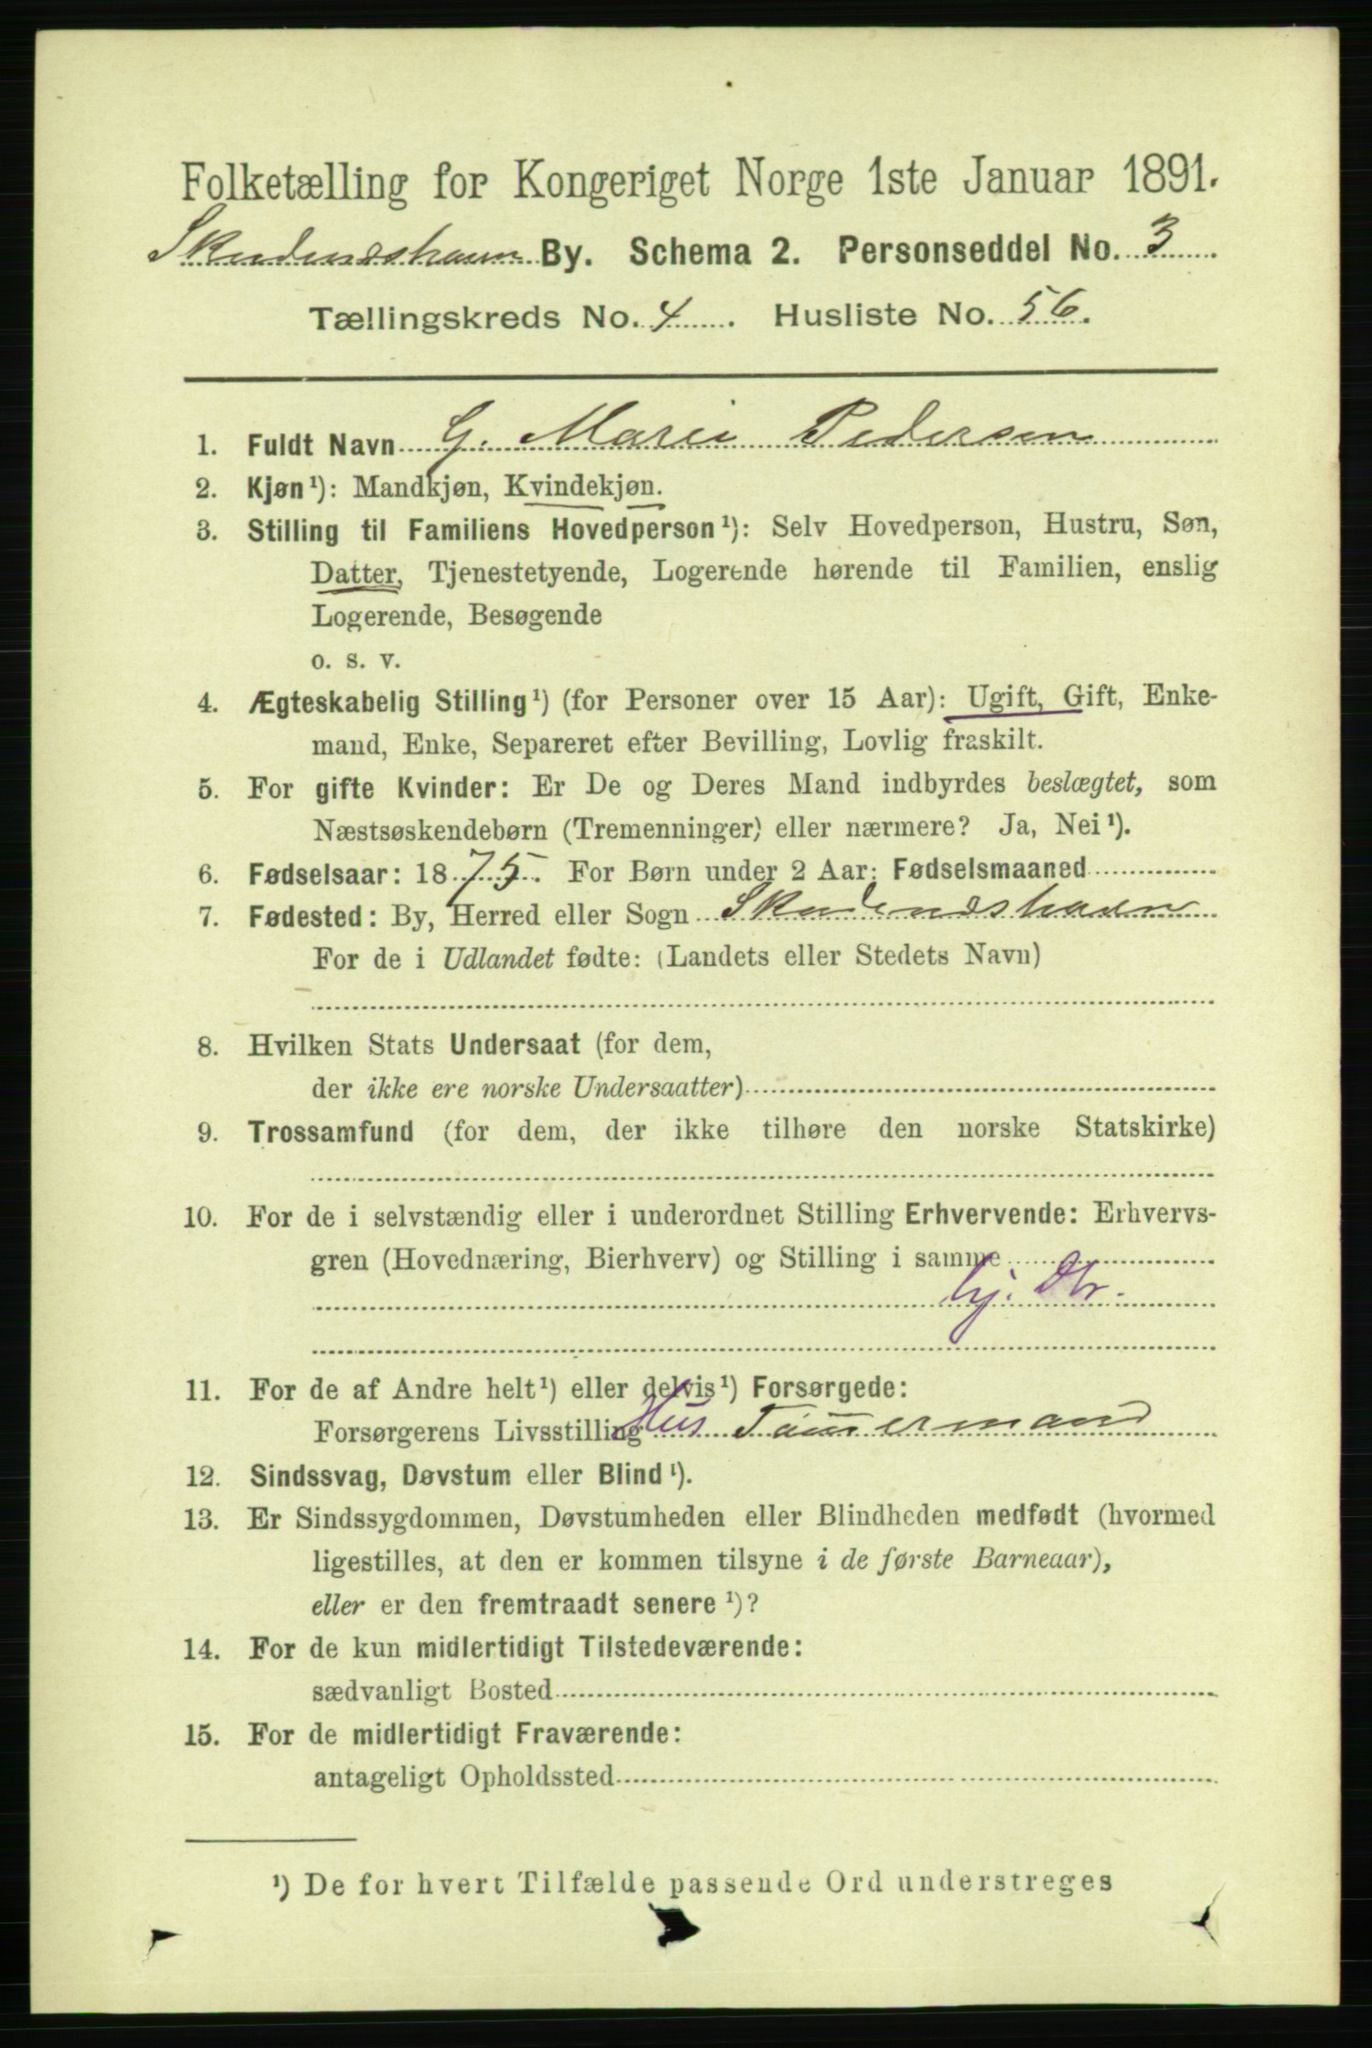 Folketælling for Kongeriget Norge 1ste Januar 1891.
Skudeneshavn By. Schema 2. Personseddel No. 3
Tællingskreds No. 4. Husliste No. 56.
1. Fuldt Navn G. Marie Pedersen
2. Kjøn¹): Mandkjøn, Kvindekjøn.
3. Stilling til Familiens Hovedperson¹): Selv Hovedperson, Hustru, Søn,
Datter, Tjenestetyende, Logerende hørende til Familien, enslig
Logerende, Besøgende
o. s. v.
4. Ægteskabelig Stilling¹) (for Personer over 15 Aar): Ugift, Gift, Enke-
mand, Enke, Separeret efter Bevilling, Lovlig fraskilt.
5. For gifte Kvinder: Er De og Deres Mand indbyrdes beslægtet, som
Næstsøskendebørn (Tremenninger) eller nærmere? Ja, Nei¹).
6. Fødselsaar: 1875. For Børn under 2 Aar: Fødselsmaaned
7. Fødested: By, Herred eller Sogn Skudeneshavn
For de i Udlandet fødte: (Landets eller Stedets Navn)
8. Hvilken Stats Undersaat (for dem,
der ikke ere norske Undersaatter)
9. Trossamfund (for dem, der ikke tilhøre den norske Statskirke)
10. For de i selvstændig eller i underordnet Stilling Erhvervende: Erhvervs-
gren (Hovednæring, Bierhverv) og Stilling i samme
hj. Dtr.
11. For de af Andre helt¹) eller delvis¹) Forsørgede:
Forsørgerens Livsstilling Hus Tømmermand
12. Sindssvag, Døvstum eller Blind¹).
13. Er Sindssygdommen, Døvstumheden eller Blindheden medfødt (hvormed
ligestilles, at den er kommen tilsyne i de første Barneaar),
eller er den fremtraadt senere¹)?
14. For de kun midlertidigt Tilstedeværende:
sædvanligt Bosted
15. For de midlertidigt Fraværende:
antageligt Opholdssted
¹) De for hvert Tilfælde passende Ord understreges